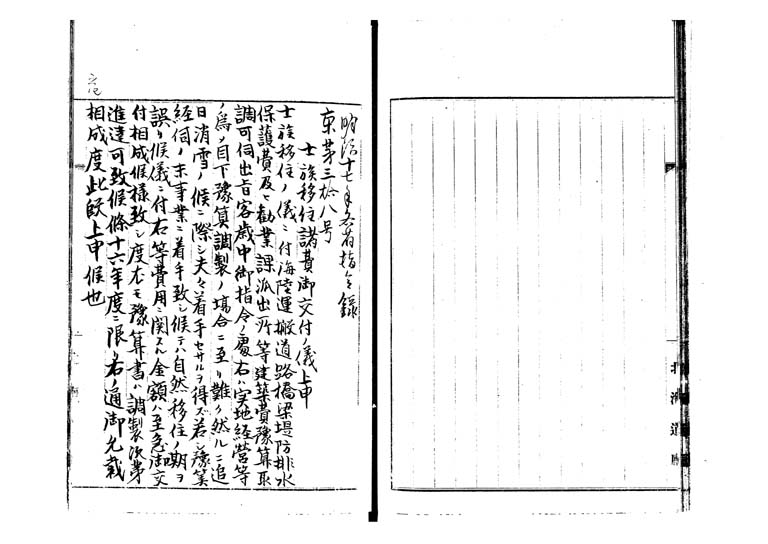 明治十七年各省指令録
東第三拾八号
士族移住諸費御交付ノ儀上申
士族移住ノ儀ニ付海陸運搬道路橋梁堤防排水
保護費及ヒ勧業課派出所等建築費豫算取
調可伺出旨客歳中御指令ノ處右ハ実地経営等
ノ為メ目下豫算調製ノ場合ニ至リ難ク然ルニ追
日消雪ノ候ニ際シ夫々着手セサルヲ得ズ若シ豫算
経伺ノ末事業ニ着手致シ候テハ自然移住ノ期ヲ
誤リ候儀ニ付右等費用ニ関スル金額ハ至急御交
付相成候様致シ度尤モ豫算書ハ調製次第
進達可致候條十六年度ニ限リ右ノ通御允裁
相成度此段上申候也
北海道廳